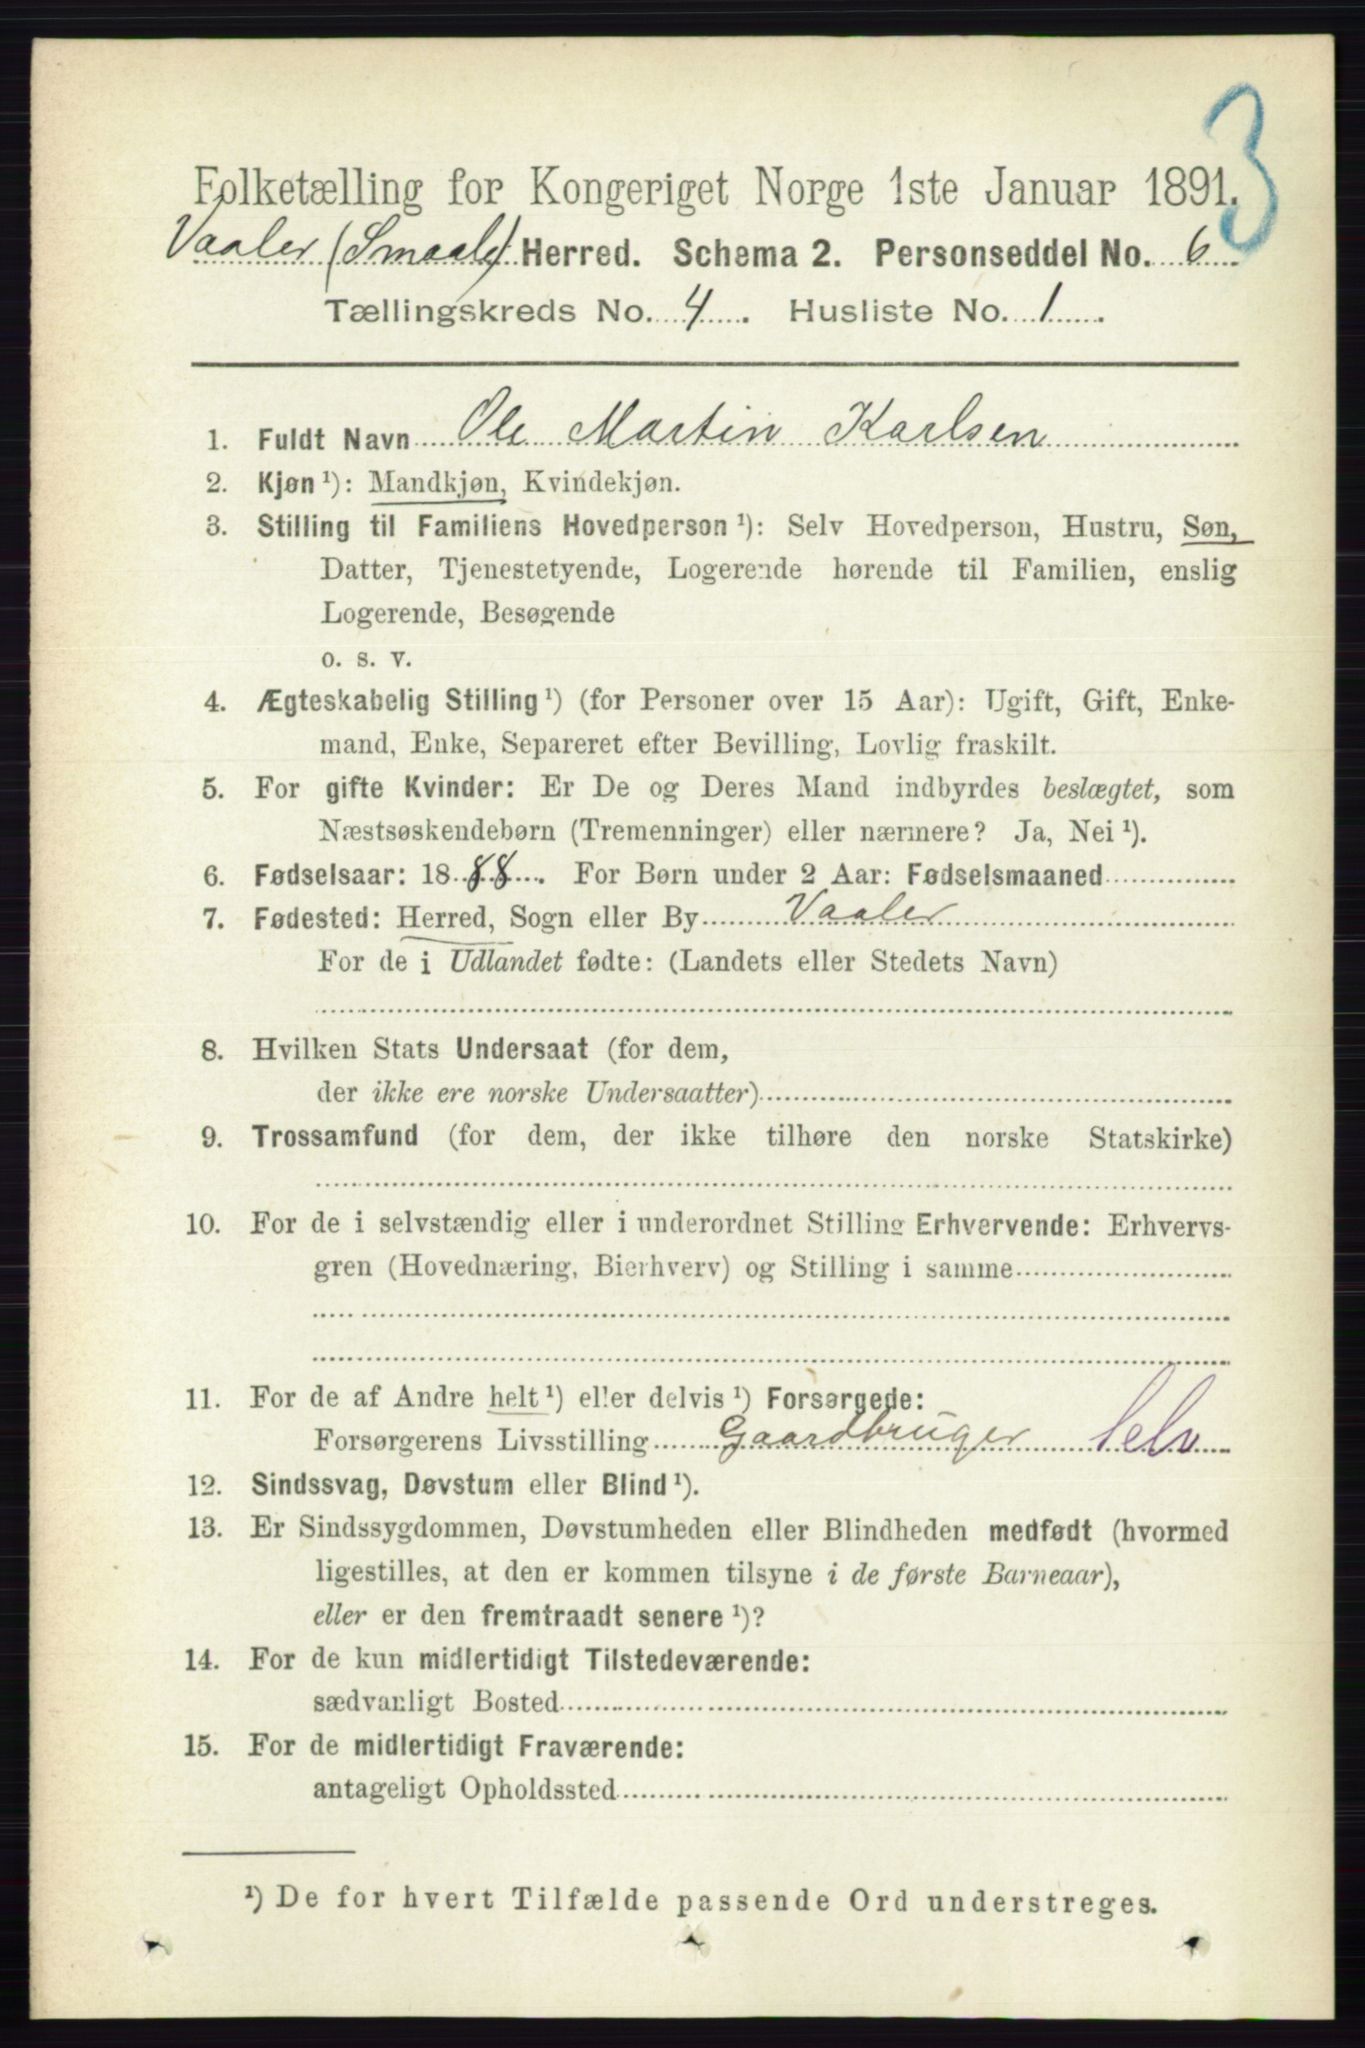 3
Folketælling for Kongeriget Norge 1ste Januar 1891.
Vaaler (Smaale) Herred. Schema 2. Personseddel No. 6.
Tællingskreds No. 4. Husliste No. 1.
1. Fuldt Navn Ole Martin Karlsen
2. Kjøn ¹): Mandkjøn, Kvindekjøn.
3. Stilling til Familiens Hovedperson ¹): Selv Hovedperson, Hustru, Søn,
Datter, Tjenestetyende, Logerende hørende til Familien, enslig
Logerende, Besøgende
o. s. v.
4. Ægteskabelig Stilling ¹) (for Personer over 15 Aar): Ugift, Gift, Enke-
mand, Enke, Separeret efter Bevilling, Lovlig fraskilt.
5. For gifte Kvinder: Er De og Deres Mand indbyrdes beslægtet, som
Næstsøskendebørn (Tremenninger) eller nærmere? Ja, Nei ¹).
6. Fødselsaar: 1888. For Børn under 2 Aar: Fødselsmaaned
7. Fødested: Herred, Sogn eller By Vaaler
For de i Udlandet fødte: (Landets eller Stedets Navn)
8. Hvilken Stats Undersaat (for dem,
der ikke ere norske Undersaatter)
9. Trossamfund (for dem, der ikke tilhøre den norske Statskirke)
10. For de i selvstændig eller i underordnet Stilling Erhvervende: Erhvervs-
gren (Hovednæring, Bierhverv) og Stilling i samme
11. For de af Andre helt ¹) eller delvis ¹) Forsørgede:
Forsørgerens Livsstilling Gaardbruger Selv
12. Sindssvag, Døvstum eller Blind ¹).
13. Er Sindssygdommen, Døvstumheden eller Blindheden medfødt (hvormed
ligestilles, at den er kommen tilsyne i de første Barneaar),
eller er den fremtraadt senere ¹)?
14. For de kun midlertidigt Tilstedeværende:
sædvanligt Bosted
15. For de midlertidigt Fraværende:
antageligt Opholdssted
¹) De for hvert Tilfælde passende Ord understreges.